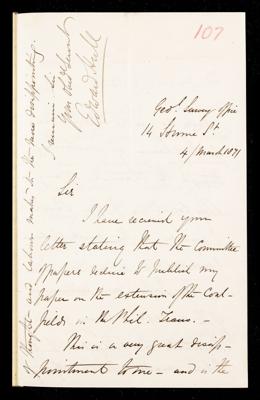 107
Geol. Survey Office
14 Hume St
4/March 1871
Sir
I have received your
letter stating that the Committee
of papers decline to publish my
paper on the extension of the Coal-
fields in the Phil. Trans. –
This is a very great disap-
pointment to me – and is the
of thought – and labour makes it the more disappointing.
I remain Sir
Your obed Servant
Edward Hull